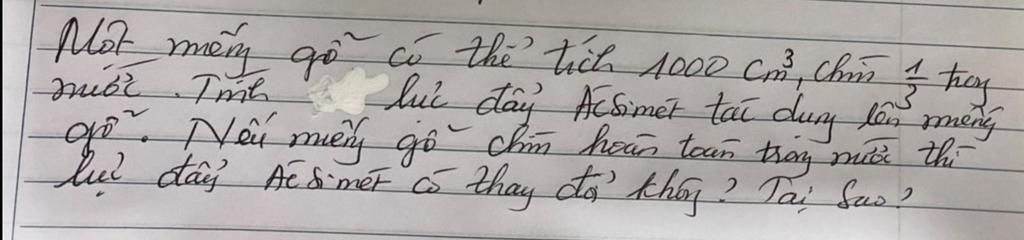 Một miếng gỗ có thể tích 1000 cm³, chìm 1/3 trong
nước. Tính lực đẩy Ácsimét tác dụng lên miếng
gỗ. Nếu miếng gỗ chìm hoàn toàn trong nước thì
lực đẩy Ácsimét có thay đổi không? Tại sao?